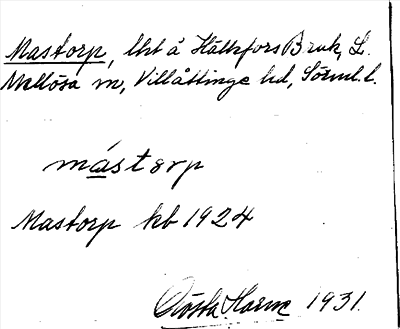 Mastorp, lht å Hällefors Bruk, L.
Mellösa sn, Villåttinge hd, Sörml. l.
mástorp
Mastorp kb 1924
Gösta 1931.